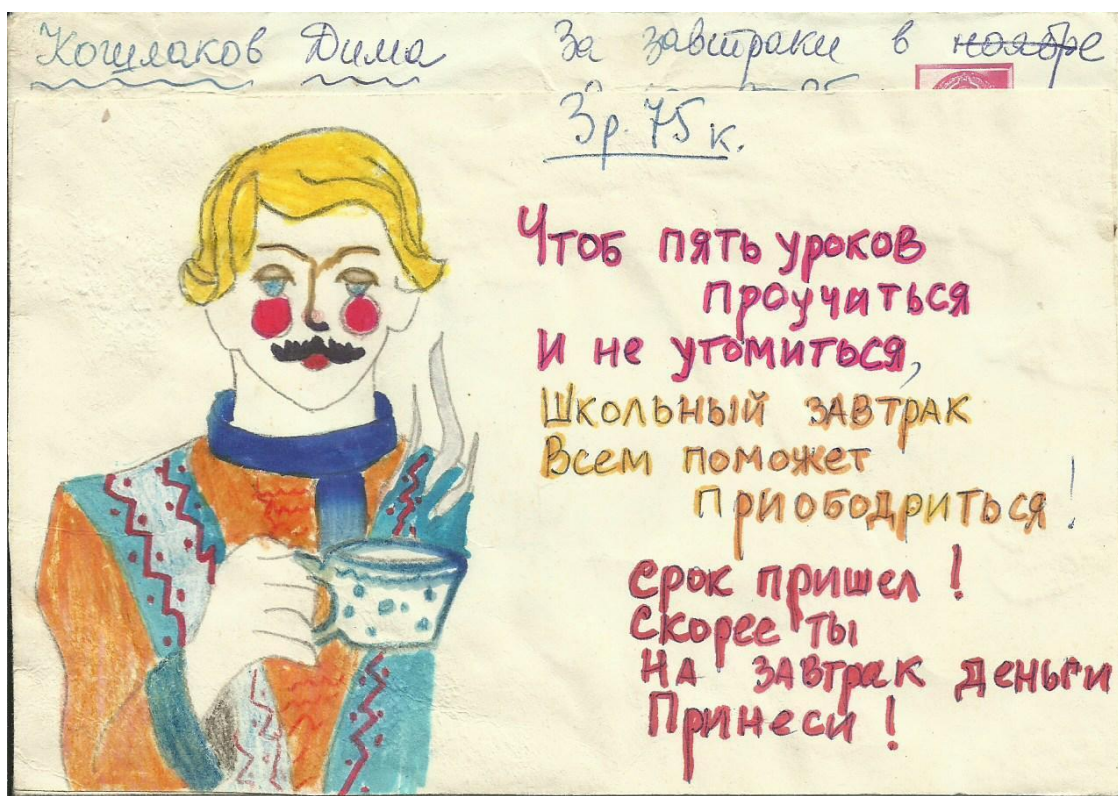 Кошлаков Дима
За завтраки в ноябре
3р. 75к.
Чтоб пять уроков
проучиться
И не утомиться,
Школьный завтрак
Всем поможет
Приободриться!
Срок пришел!
Скорее ты
На завтрак деньги
Принеси!